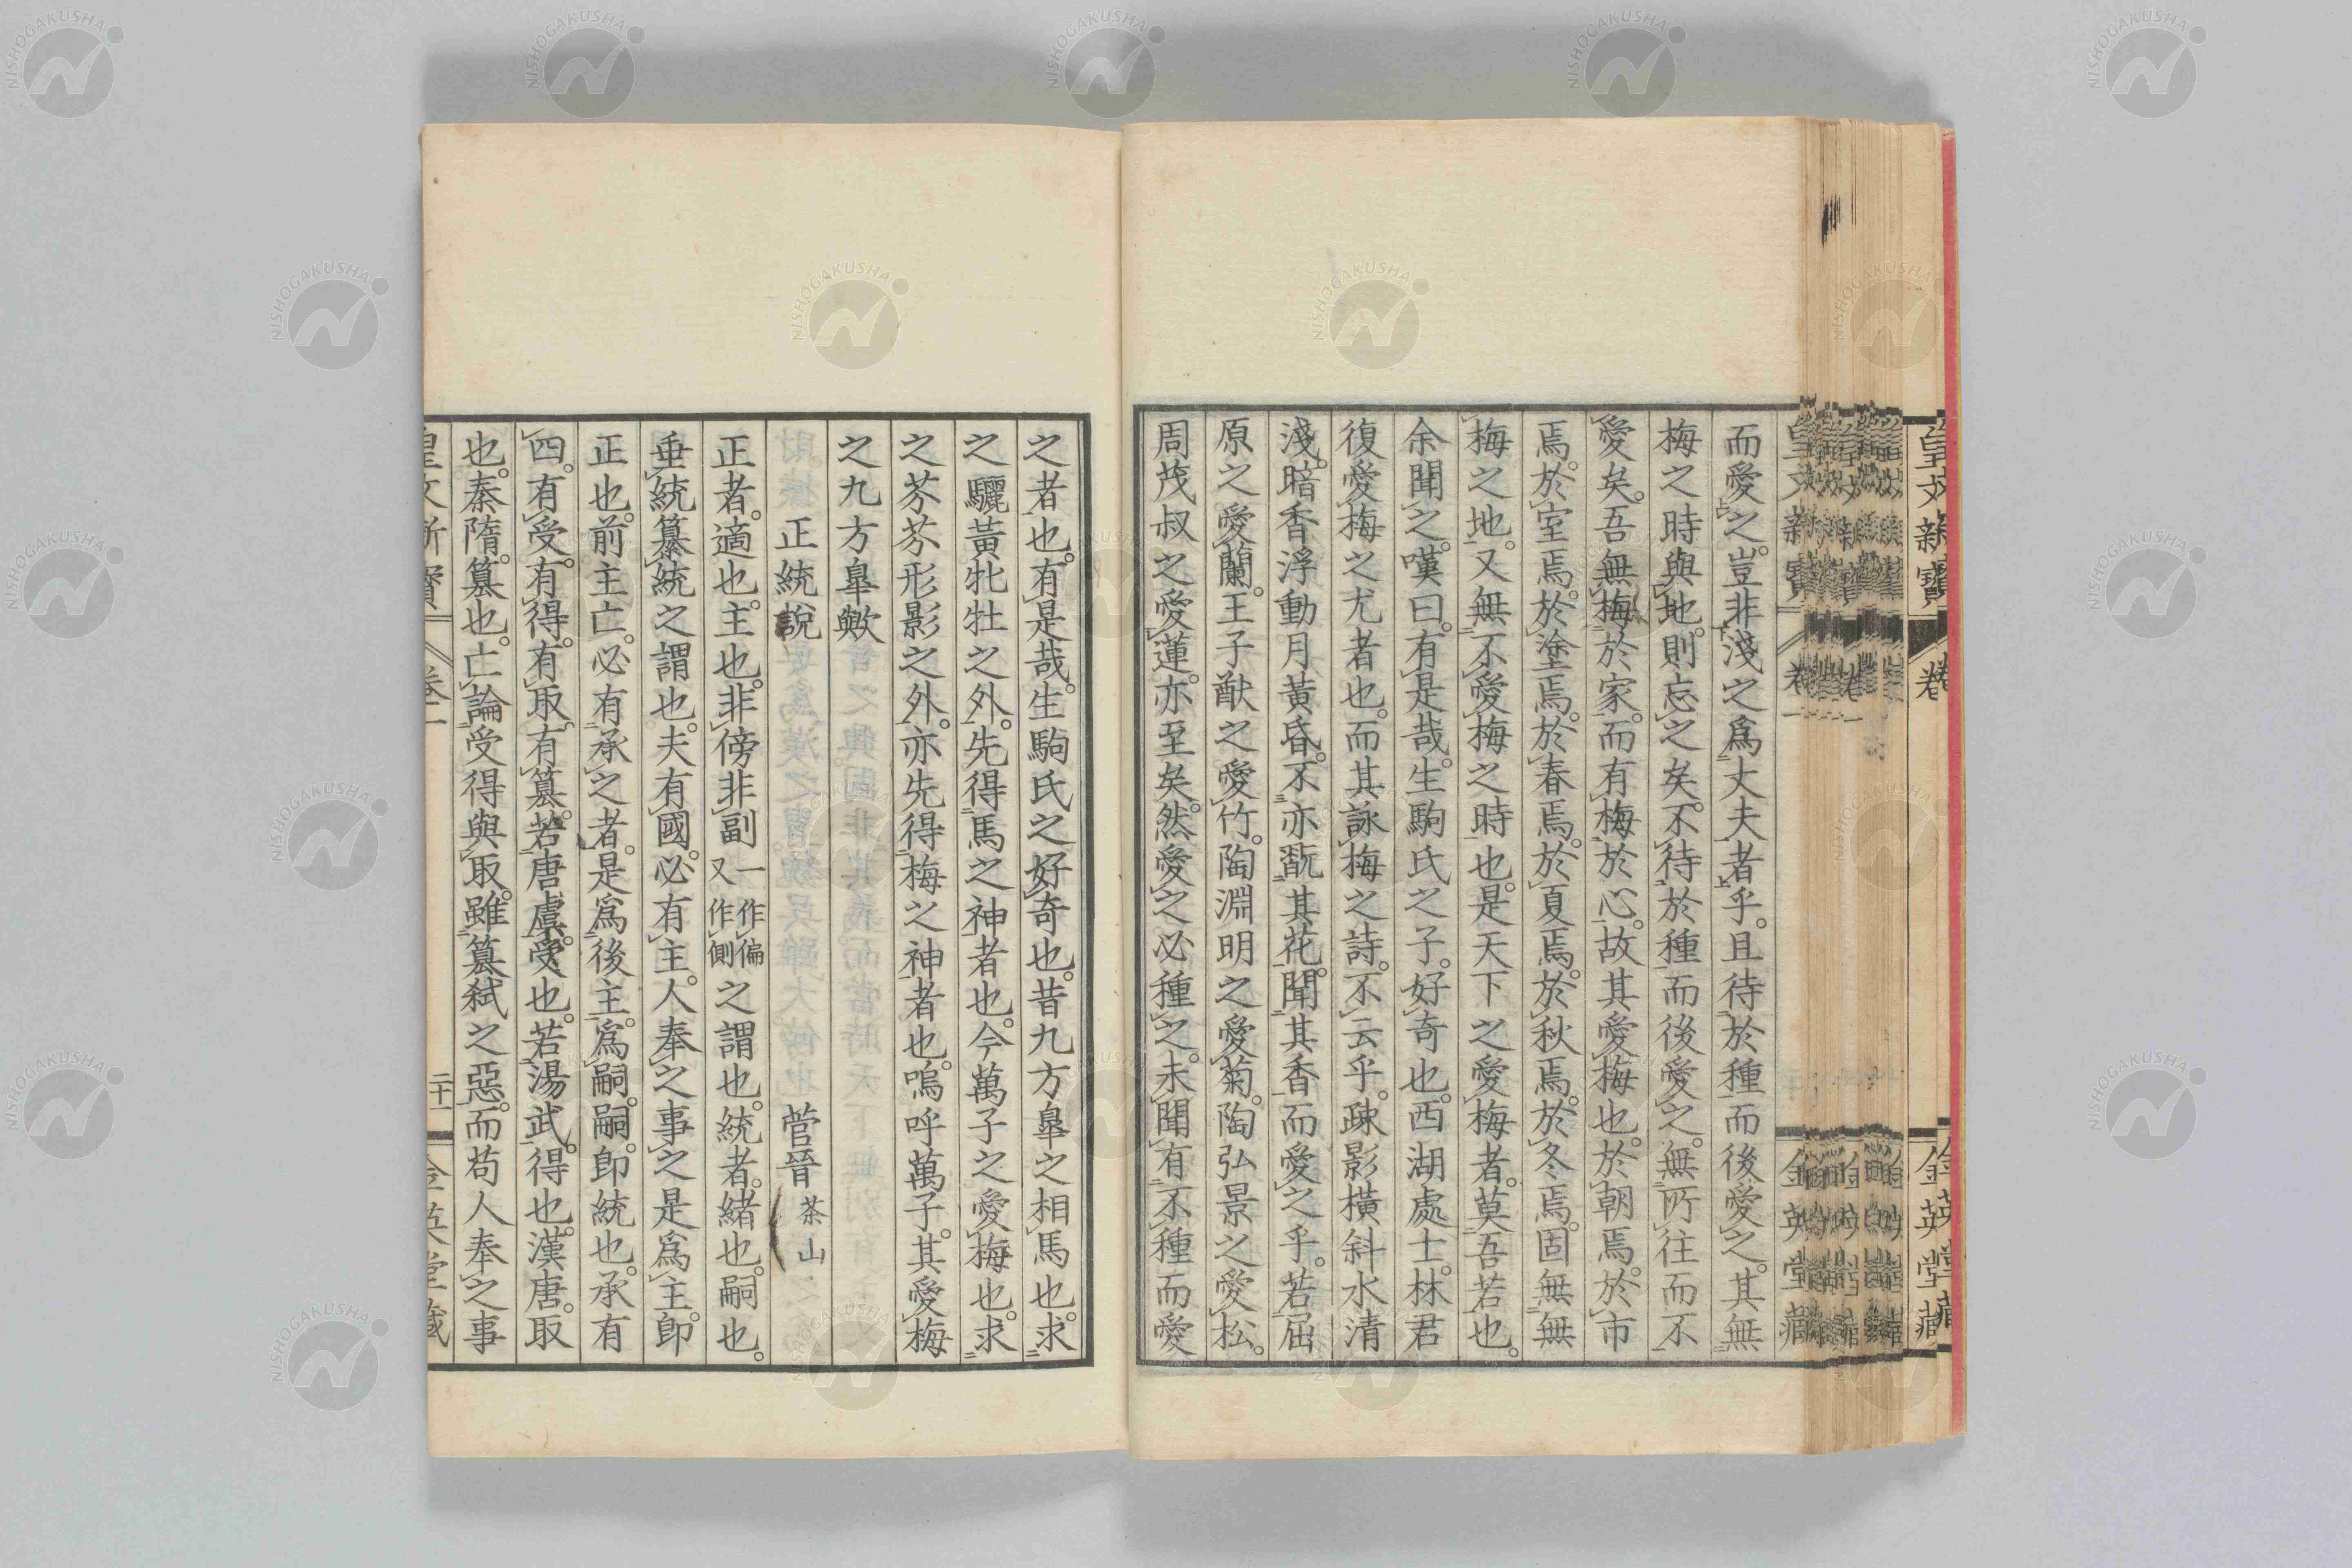 而愛之。豈非淺之爲丈夫者乎。且待於種而後愛之。其無
梅之時與地。則忘之矣。不待於種而後愛之。無所往而不
愛矣。吾無梅於家。而有梅於心。故其愛梅也。於朝焉。於市
焉。於室焉。於塗焉。於春焉。於夏焉。於秋焉。於冬焉。固無無
梅之地。又無不愛梅之時也。是天下之愛梅者。莫吾若也。
余聞之。嘆曰。有是哉。生駒氏之子。好奇也。西湖處士。林君
復愛梅之尤者也。而其詠梅之詩。不云乎。疎影橫斜水清
淺。暗香浮動月黃昏。不亦翫其花。聞其香。而愛之乎。若屈
原之愛蘭。王子猷之愛竹。陶淵明之愛菊。陶弘景之愛松。
周茂叔之愛蓮。亦至矣。然愛之必種之。未聞有不種而愛
之者也。有是哉。生駒氏之好奇也。昔九方皐之相馬也。求
之驪黃牝牡之外。先得馬之神者也。今萬子之愛梅也。求
之芬芬形影之外。亦先得梅之神者也。嗚呼萬子。其愛梅
之九方皐歟
正統說 菅晉 茶山
正者。適也。主也。非傍非副 一作偏又作側 之謂也。統者。緒也。嗣也。
垂統纂統之謂也。夫有國。必有主。人奉之事之是爲主。卽
正也。前主亡。必有承之者。是爲後主。爲嗣。嗣。卽統也。承有
四。有受。有得。有取。有簒。若唐虞。受也。若湯武。得也。漢唐。取
也。秦隋。簒也。亡論受得與取。雖簒弑之惡。而苟人奉之事
皇文新寶 卷二 二十一 金英堂藏
皇文新寶 卷 金英堂藏